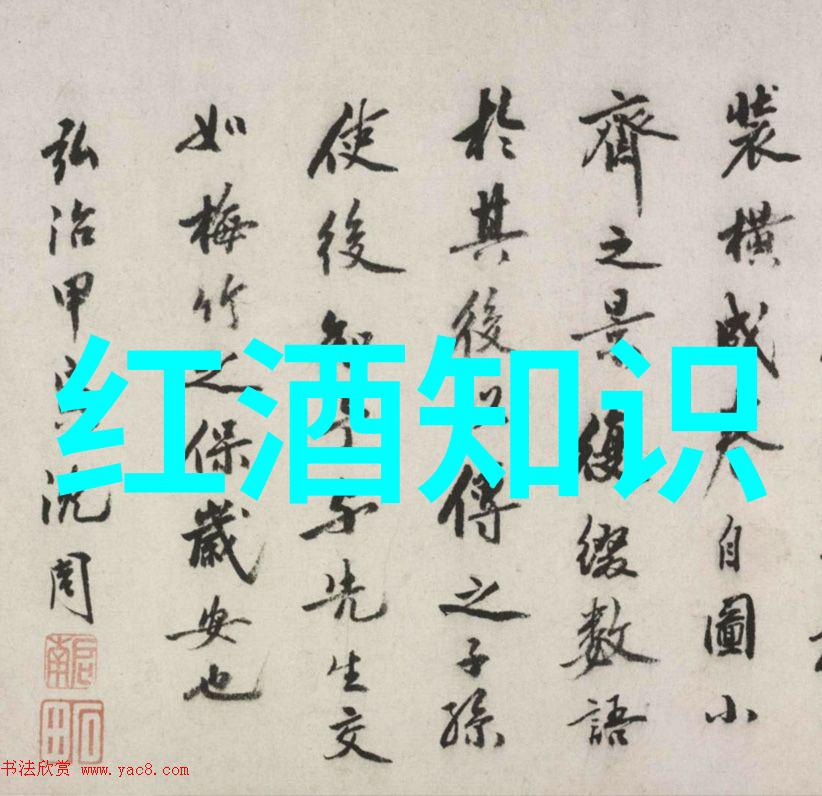 裝橫成自圖小
齊之景復綴數語
於其後傳之子孫
使後先生交
如梅竹之保歲安也
弘治甲沈周
啟南
石田
红酒知识
书法欣赏 www.yac8.com